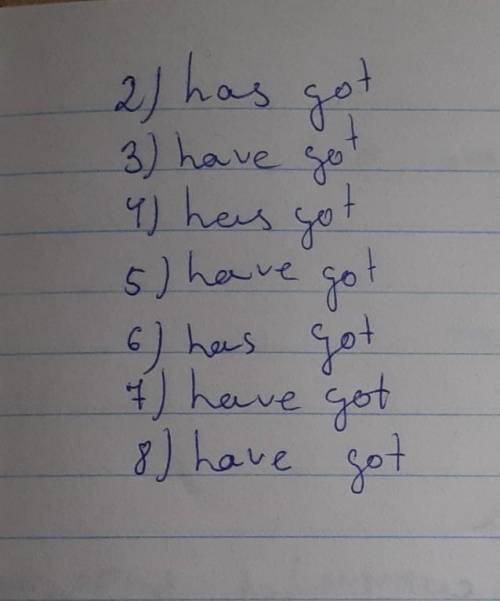 2) has got
3) have got
4) has got
5) have got
6) has got
7) have got
8) have got